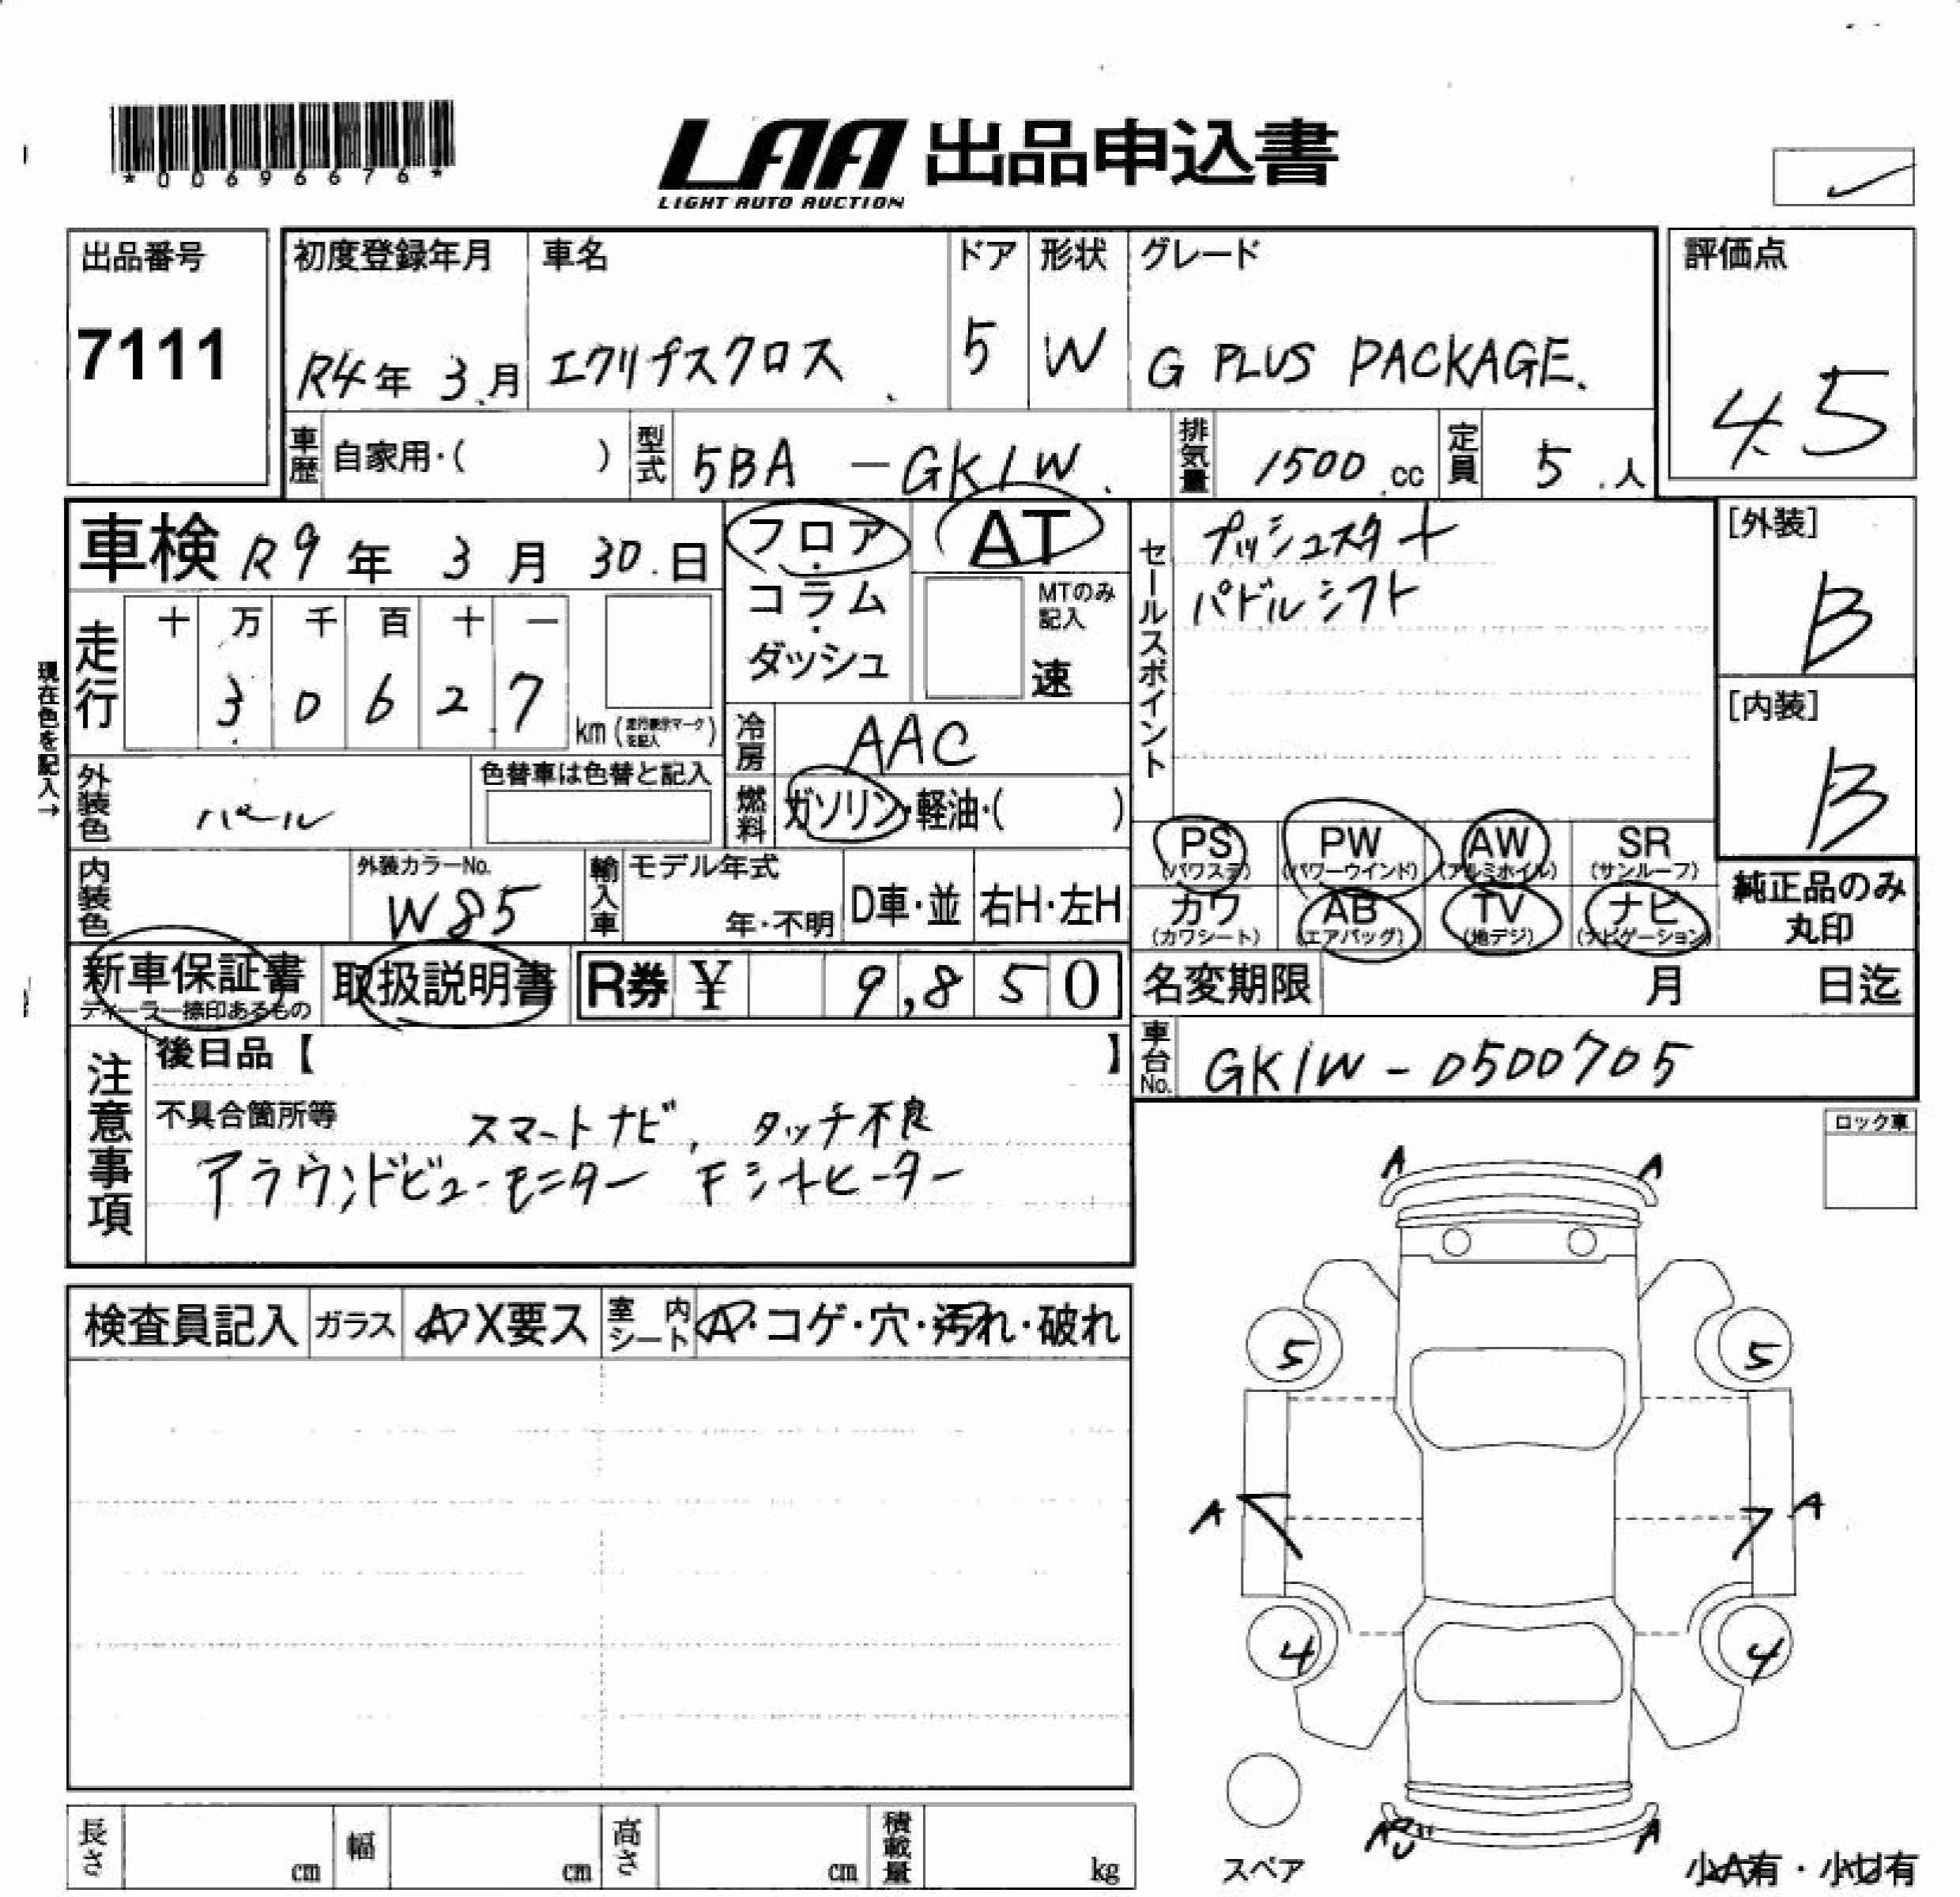 *0069676*
LAA 出品申込書
LIGHT AUTO AUCTION
出品番号
7111
初度登録年月
R4年 3月
車名
エクリプスクロス
ドア
5
形状
W
グレード
G PLUS PACKAGE
評価点
4.5
車歴 自家用・( )
型式 5BA - GK1W
排気量 1500 cc
定員 5 人
車検 R9年 3月 30日
フロア・コラム・ダッシュ
AT
MTのみ記入
速
セールスポイント
プッシュスタート
パドルシフト
[外装]
B
[内装]
B
現在色を記入→
走行
十 万 千 百 十 一
3 0 6 2 7 km (走行表示マークを記入)
冷房 AAC
外装色 パール
色替車は色替と記入
燃料 ガソリン・軽油・( )
PS (パワステ)
PW (パワーウインド)
AW (アルミホイル)
SR (サンルーフ)
内装色
外装カラーNo.
W85
輸入車
モデル年式
年・不明
D車・並
右H・左H
カワ (カワシート)
AB (エアバッグ)
TV (地デジ)
ナビ (ナビゲーション)
純正品のみ丸印
新車保証書
ディーラー捺印あるもの
取扱説明書
R券 ¥ 9,850
名変期限 月 日迄
車台No. GK1W - 0500705
注意事項
後日品【 】
不具合箇所等
スマートナビ, タッチ不良
アラウンドビューモニター Fシートヒーター
ロック車
A A
5 5
A A
4 4
A
スペア
小A有・小U有
検査員記入
ガラス A X要ス
室内シート A・コゲ・穴・汚れ・破れ
長さ cm
幅 cm
高さ cm
積載量 kg